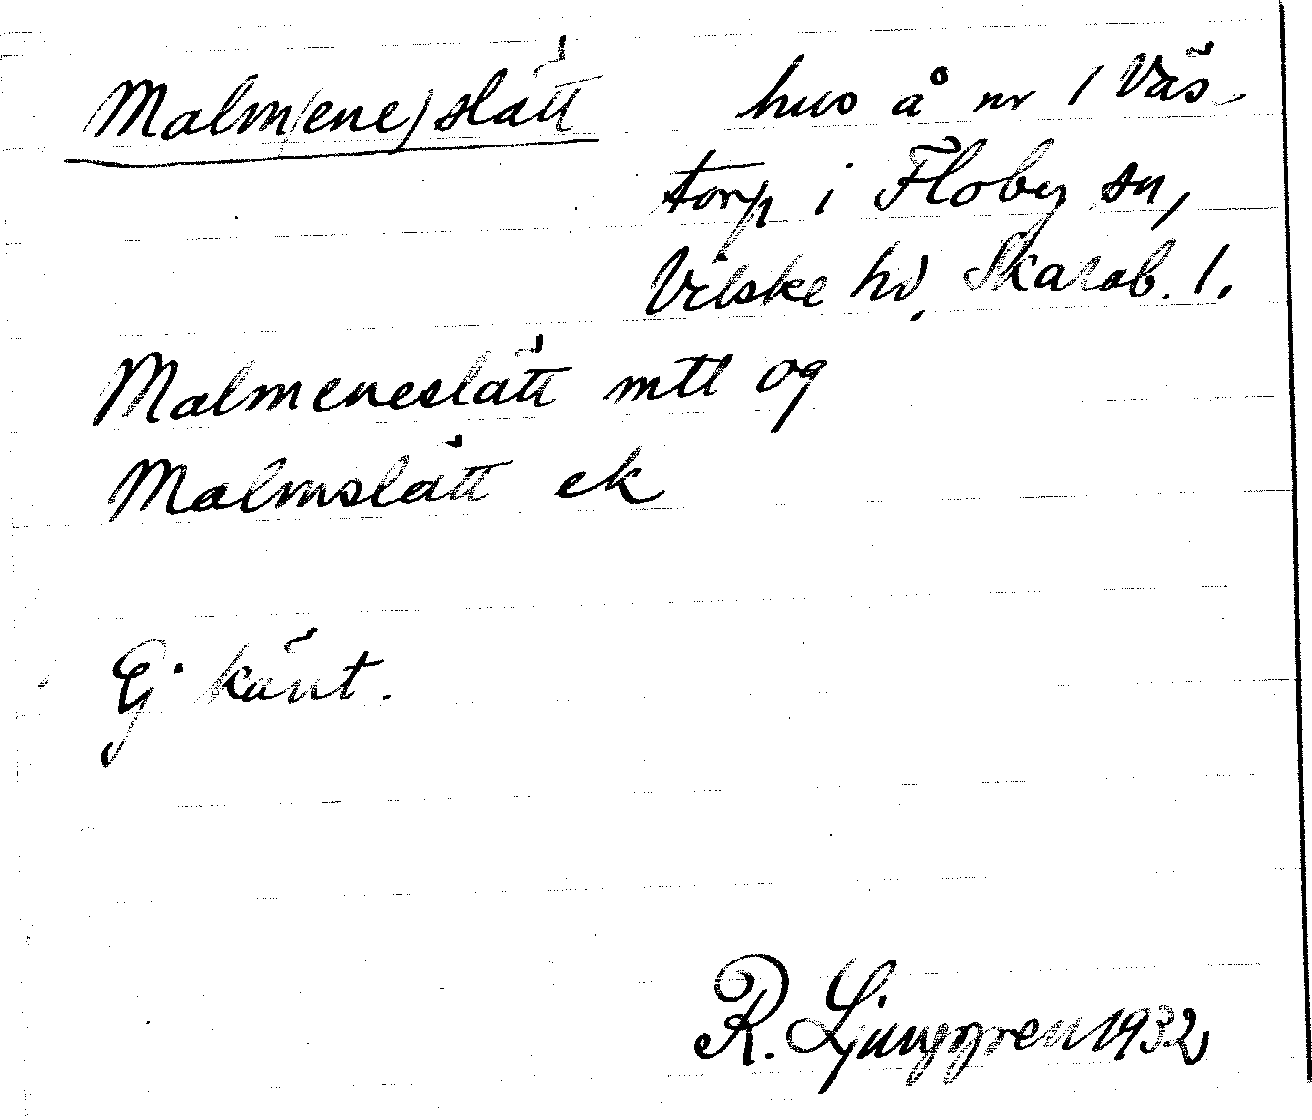 Malm(ene)slätt hus å nr 1 Väs-
torp i Floby sn,
Vilske hd, Skarab. l.
Malmeneslätt mtl og
Malmslätt ek
Ej känt.
R. Ljunggren 1932